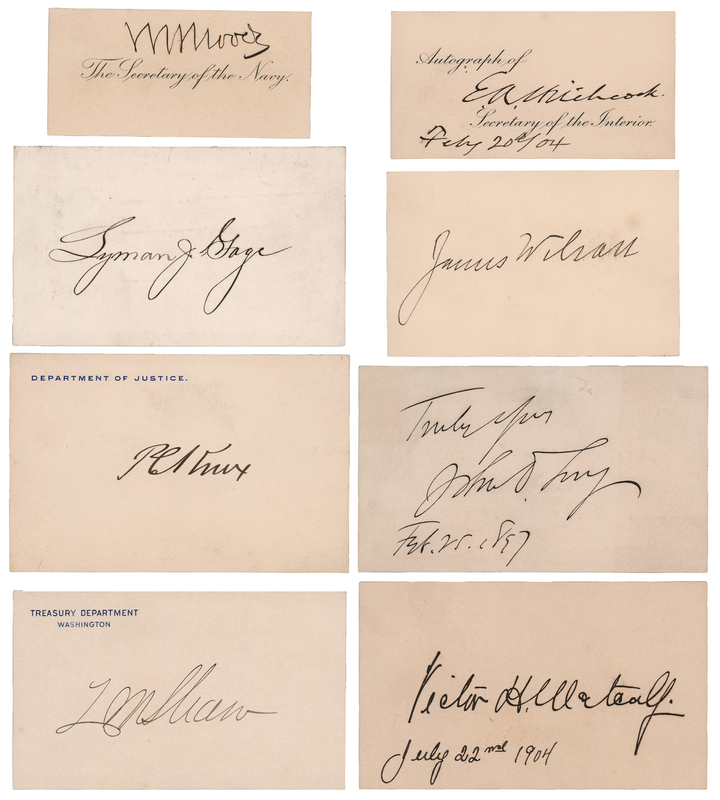 W H Moody
The Secretary of the Navy.
Autograph of
E A Hitchcock.
Secretary of the Interior.
Feby 20th/04
Lyman J. Gage
James Wilson
DEPARTMENT OF JUSTICE.
P C Knox
Truly yrs
John D. Long
Feb. 25. 1897
TREASURY DEPARTMENT
WASHINGTON
L M Shaw
Victor H. Metcalf.
July 22nd 1904